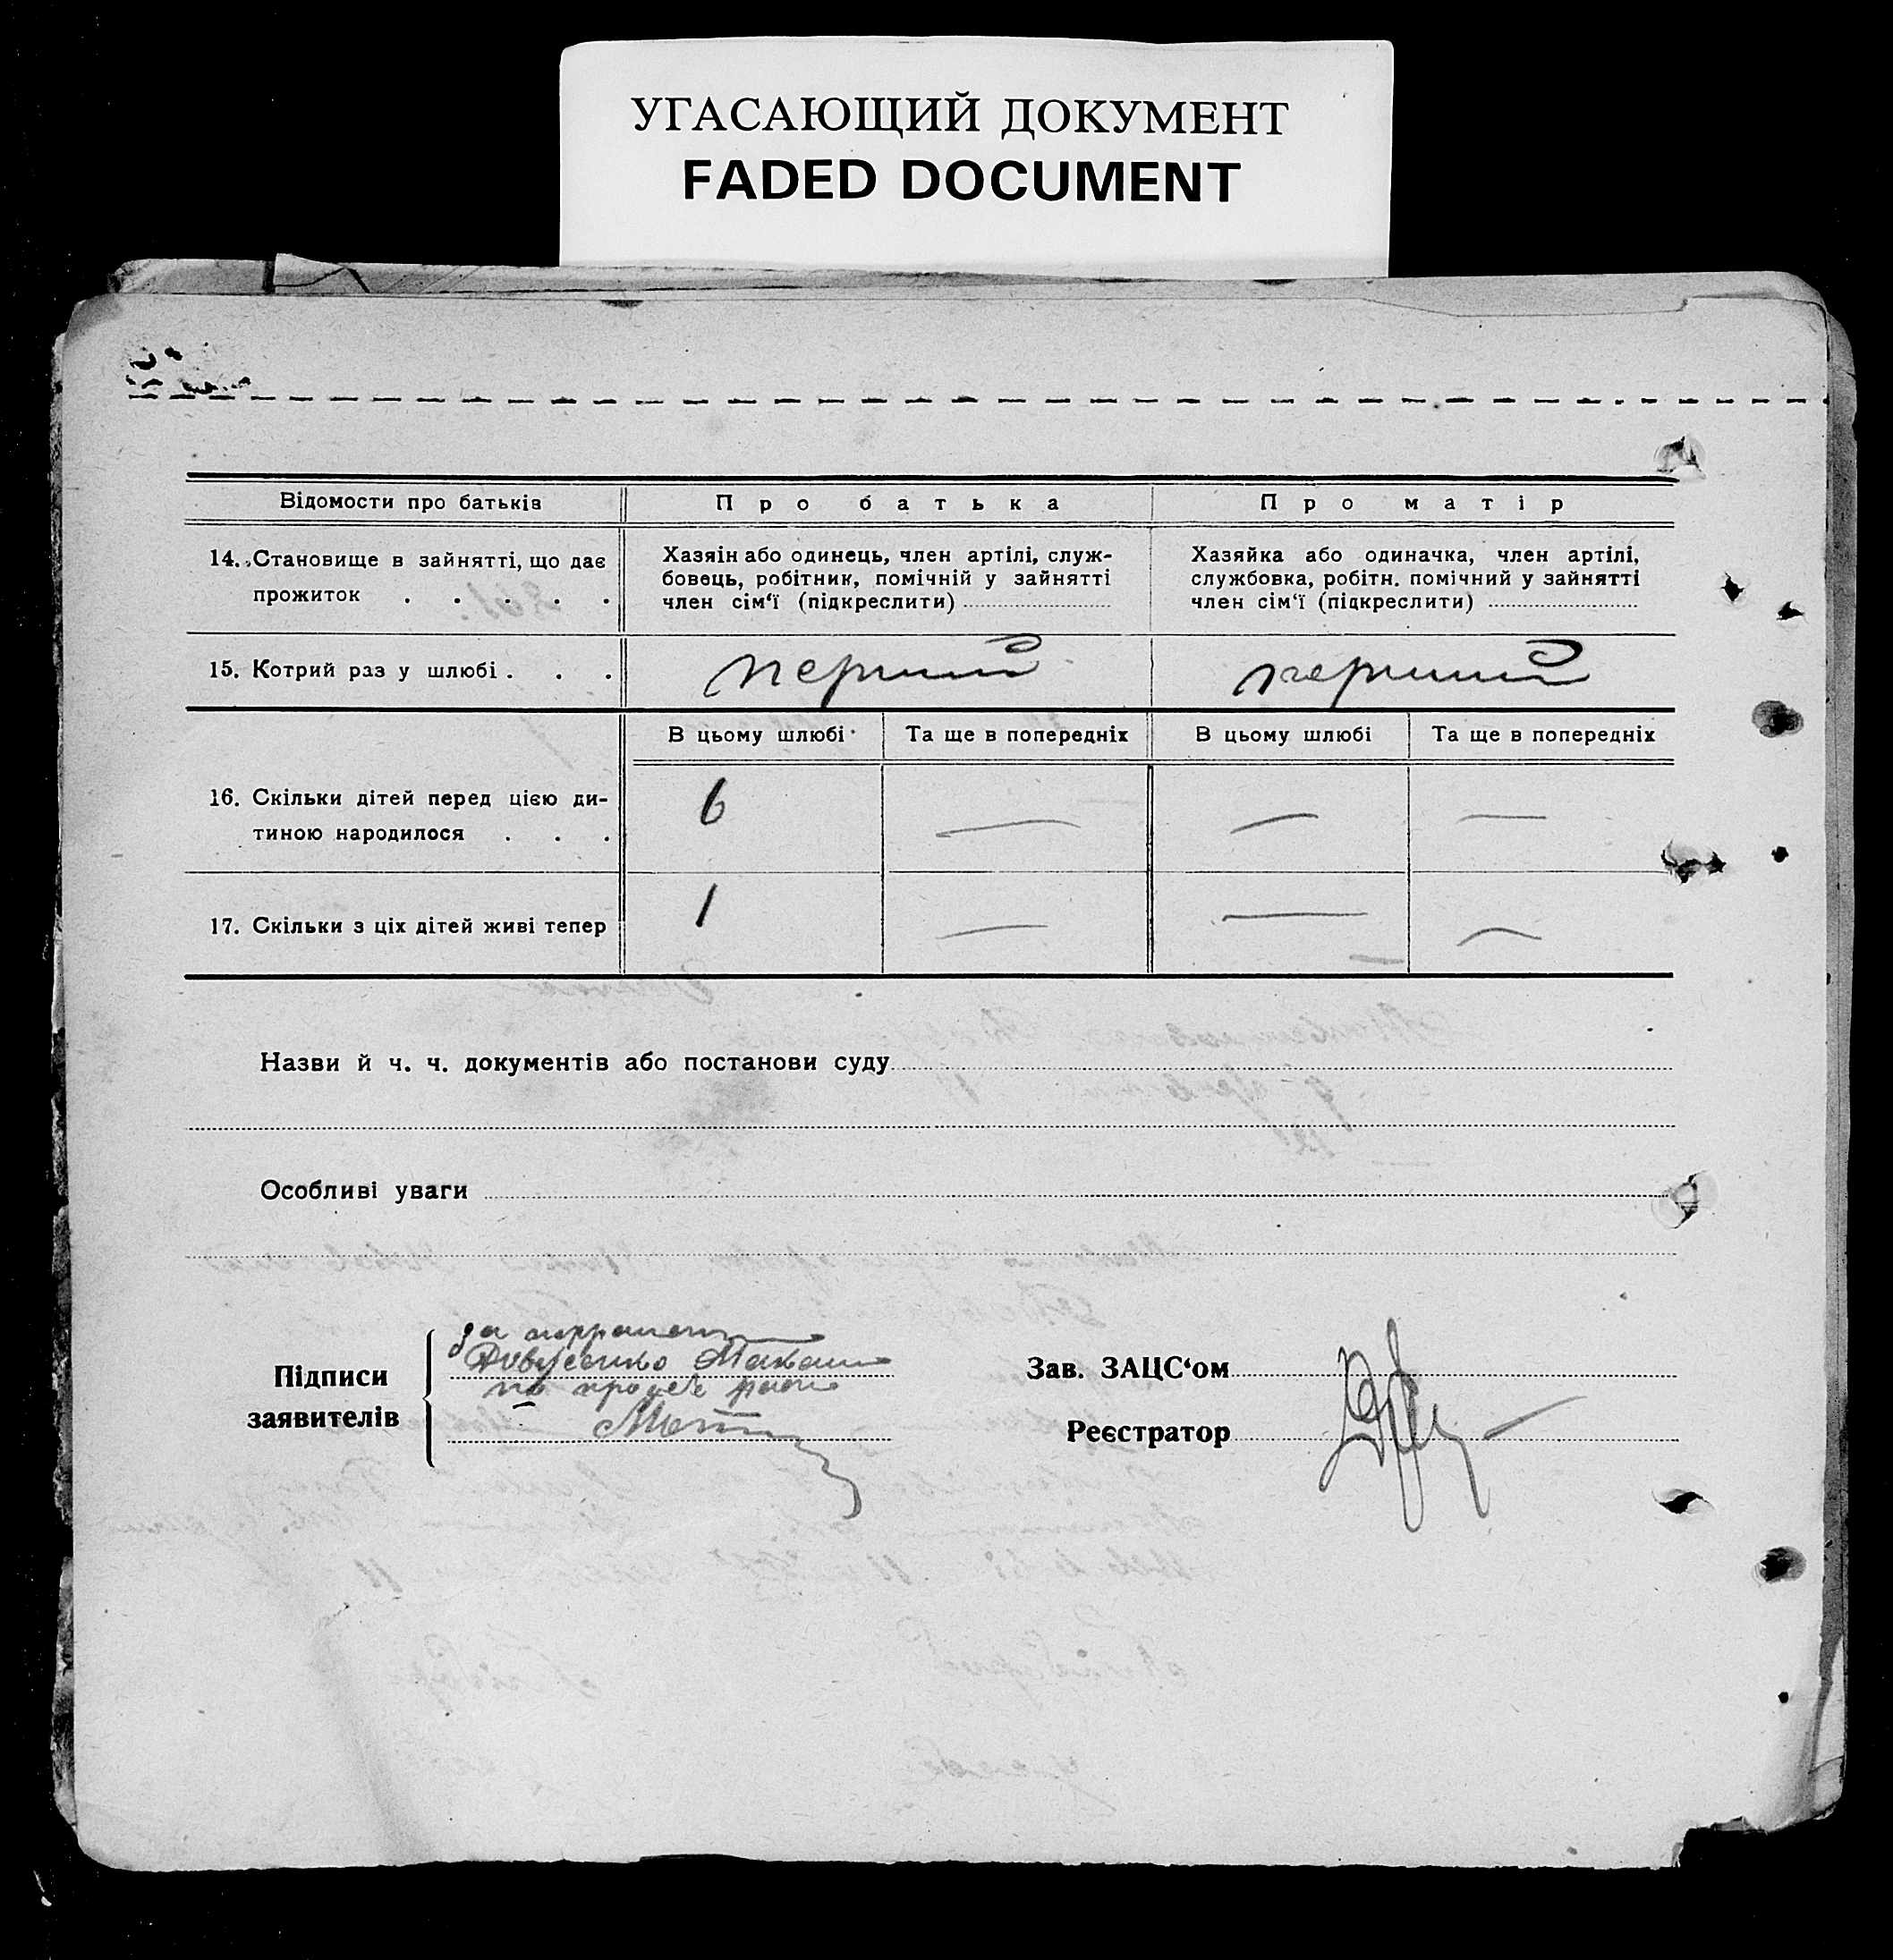 УГАСАЮЩИЙ ДОКУМЕНТ
FADED DOCUMENT
Відомости про батьків
Про батька
Про матір
14. Становище в зайнятті, що дає
прожиток . . . . .
Хазяін або одинець, член артілі, служ-
бовець, робітник, помічній у зайнятті
член сім‘ї (підкреслити)
Хазяйка або одиначка, член артілі,
службовка, робітн. помічний у зайнятті
член сім‘ї (підкреслити)
15. Котрий раз у шлюбі . . .
перший
перший
В цьому шлюбі
Та ще в попередніх
В цьому шлюбі
Та ще в попередніх
16. Скільки дітей перед цією ди-
тиною народилося . . .
6 — — —
17. Скільки з ціх дітей живі тепер
1 — — —
Назви й ч. ч. документів або постанови суду
Особливі уваги
Підписи
заявителів
за
по
Зав. ЗАЦС‘ом
Реєстратор